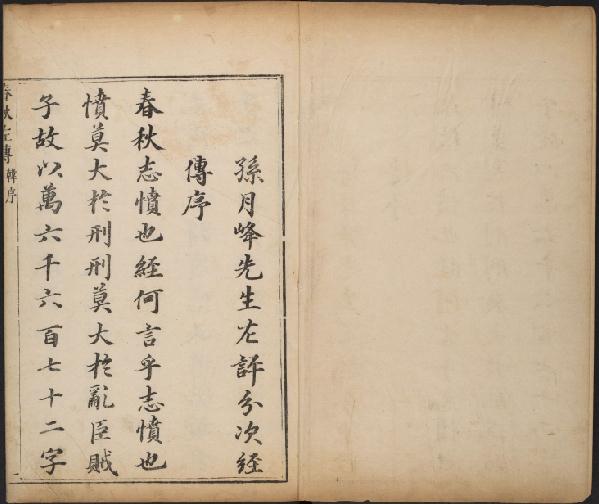 孫月峰先生左評分次經
傳序
春秋志憤也經何言乎志憤也
憤莫大於刑刑莫大於亂臣賊
子故以萬六千六百七十二字
春秋左傳 韓序